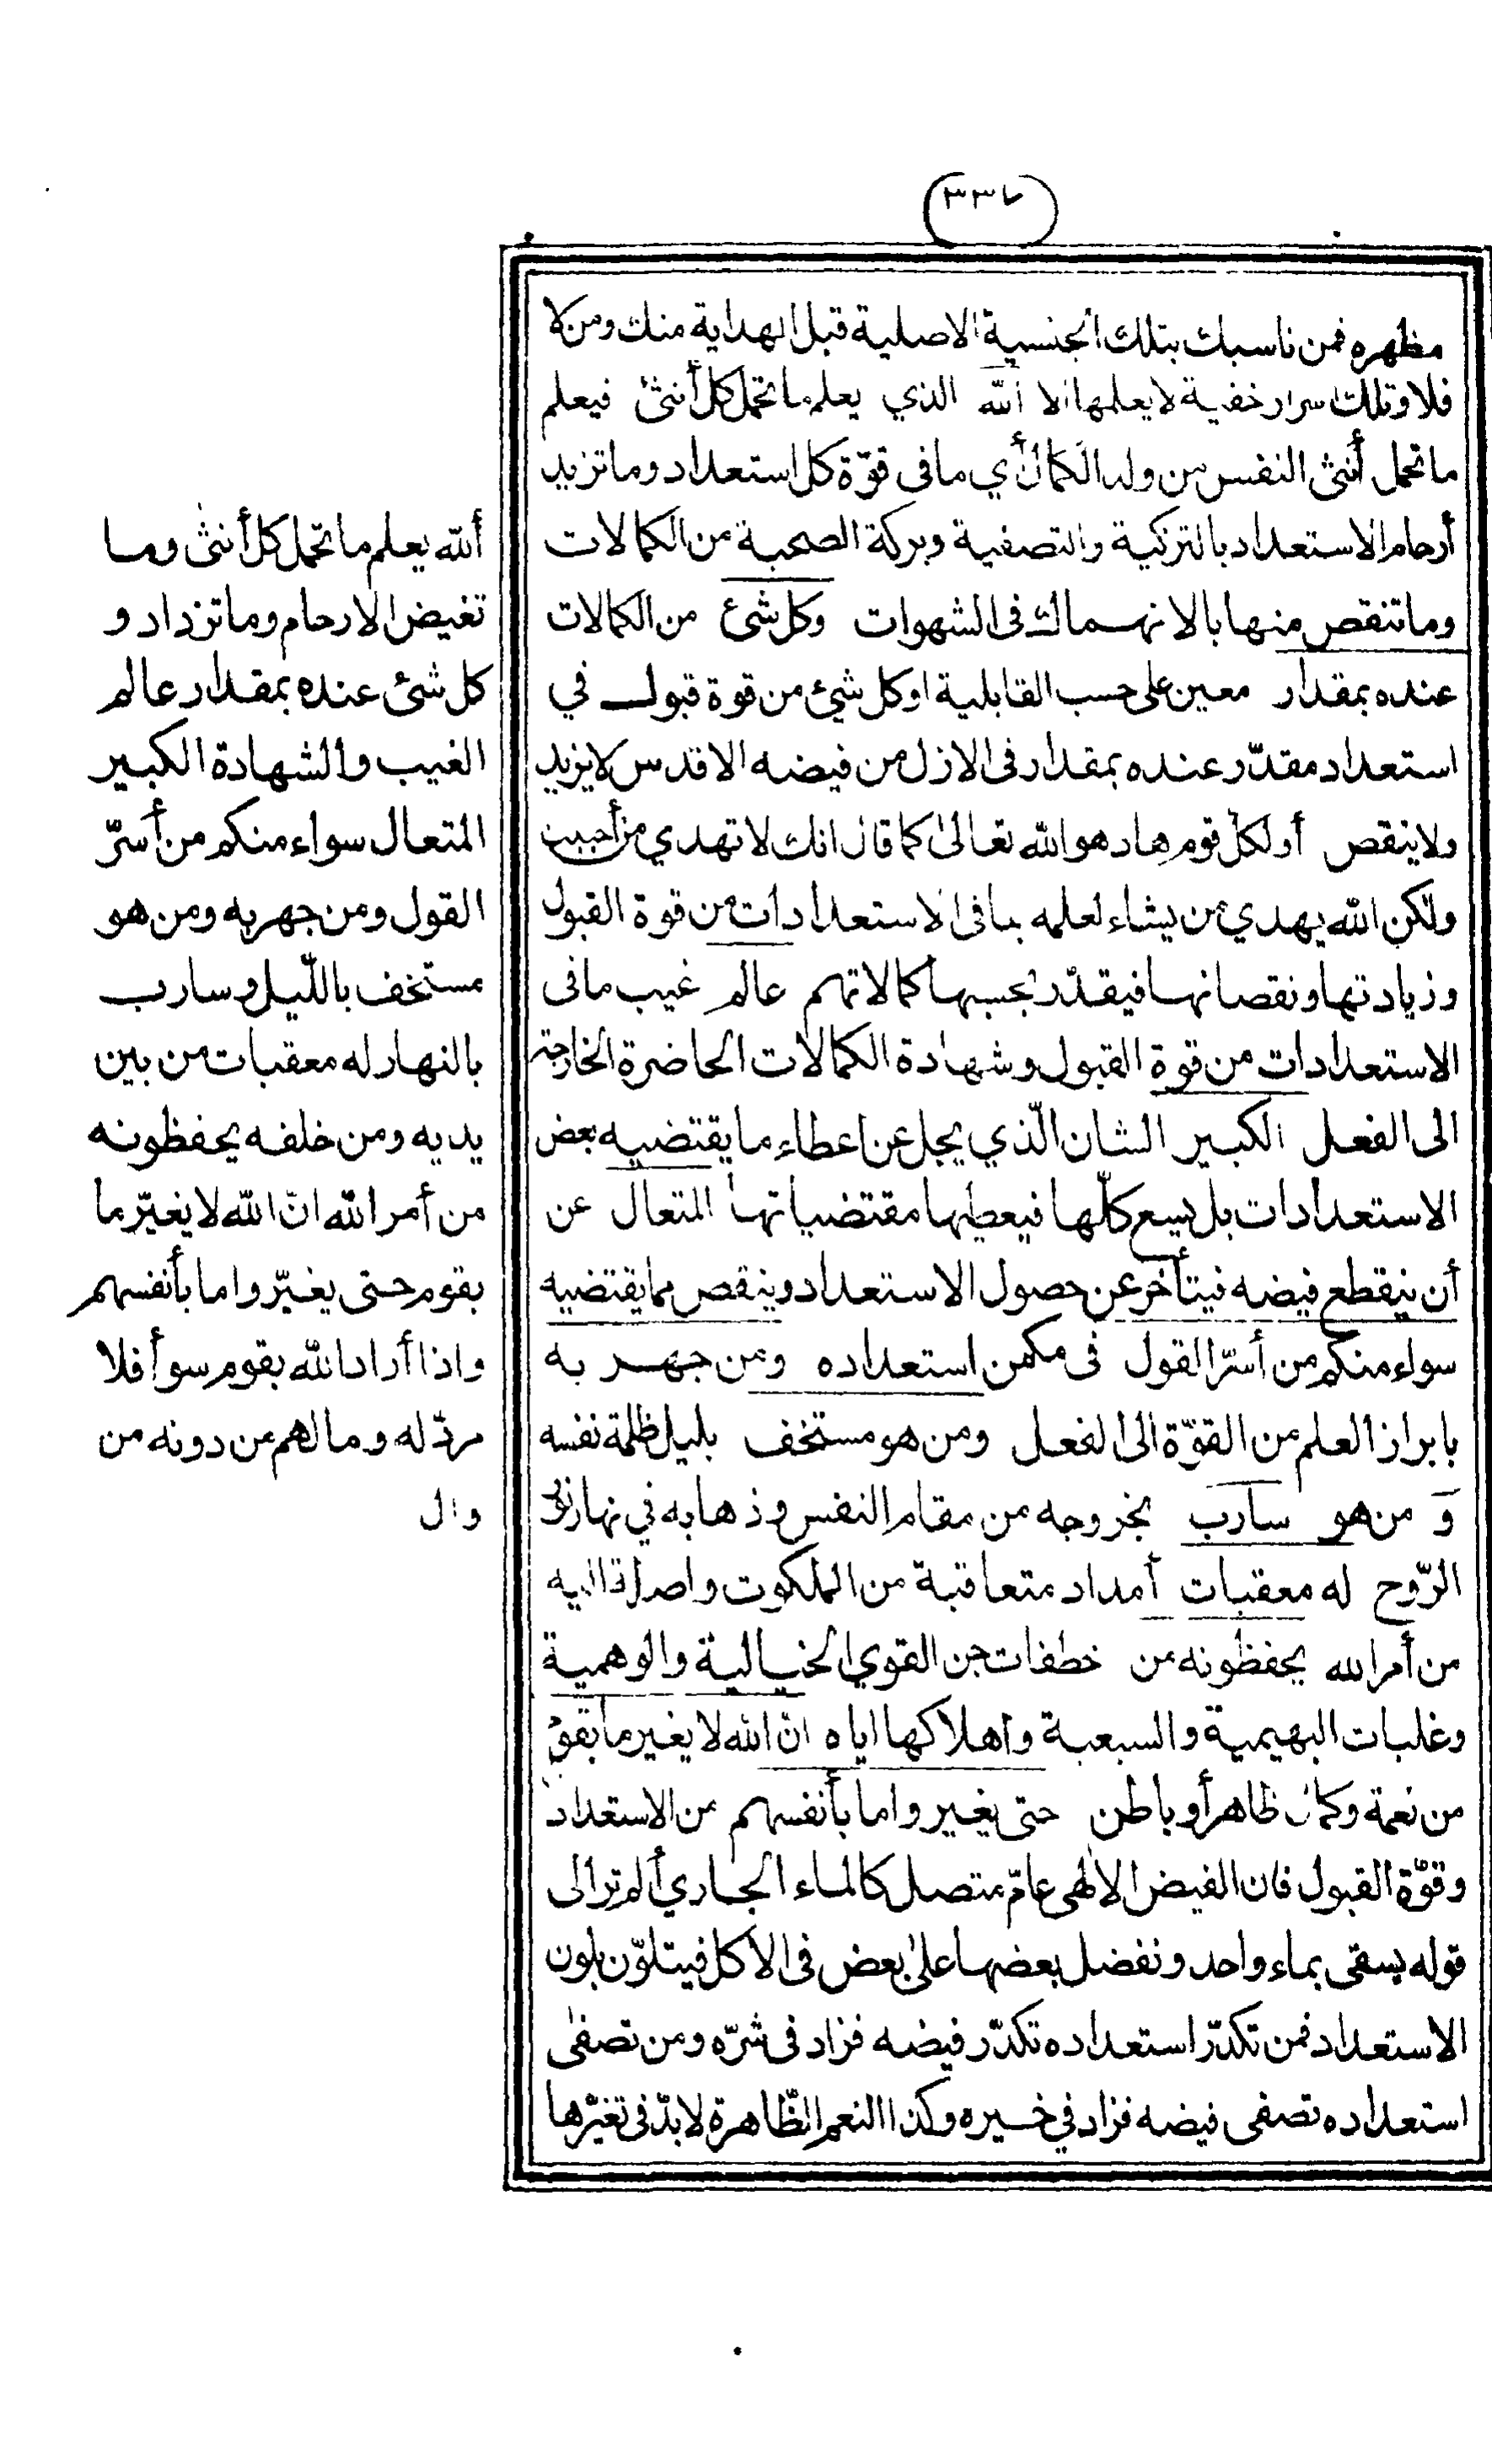 مظهره فمن ناسبك بتلك الجنسية الاصلية قبل الهداية منك ومن لا
فلا وتلك اسرار خفية لا يعلمها الا الله الذي يعلم ما تحمل كل أنثى فيعلم
ما تحمل أنثى النفس من ولد الكمال أي ما في قوّة كل استعداد وما تزيد
أرحام الاستعداد بالتزكية والتصفية وبركة الصحبة من الكمالات
وما تنقص منها بالانهماك في الشهوات وكل شئ من الكمالات
عنده بمقدار معين على حسب القابلية او كل شئ من قوة قبول في
استعداد مقدّر عنده بمقدار في الازل من فيضه الاقدس لا يزيد
ولا ينقص أو لكل قوم هاد هو الله تعالى كما قال انك لا تهدي من أحببت
ولكن الله يهدي من يشاء لعلمه بما في الاستعدادات من قوة القبول
وزيادتها ونقصانها فيقدّر بحسبها كمالاتهم عالم غيب ما في
الاستعدادات من قوة القبول وشهادة الكمالات الحاضرة الخارجة
الى الفعل الكبير الشان الّذي يجل عن اعطاء ما يقتضيه بعض
الاستعدادات بل يسع كلّها فيعطيها مقتضياتها المتعال عن
أن ينقطع فيضه فيتأخر عن حصول الاستعداد وينقص مما يقتضيه
سواء منكم من أسرّ القول في مكمن استعداده ومن جهر به
بابراز العلم من القوّة الى الفعل ومن هو مستخف بليل ظلمة نفسه
وَ من هو سارب بخروجه من مقام النفس وذهابه في نهار نور
الرّوح له معقبات أمداد متعاقبة من الملكوت واصلة اليه
من أمر الله يحفظونه من خطفات جن القوي الخيالية والوهمية
وغلبات البهيمية والسبعية واهلاكها اياه ان الله لا يغير ما بقوم
من نعمة وكمال ظاهر أو باطن حتى يغيروا ما بأنفسهم من الاستعداد
وقوّة القبول فان الفيض الالٰهى عامّ متصل كالماء الجاري ألم تر الى
قوله يسقى بماء واحد ونفضل بعضها على بعض في الاكل فيتلوّن بلون
الاستعداد فمن تكدّر استعداده تكدّر فيضه فزاد في شرّه ومن تصفى
استعداده تصفى فيضه فزاد في خيره وكذا النعم الظّاهرة لا بدّ في تغيّرها
أللّه يعلم ما تحمل كل أنثى وما
تغيض الارحام وما تزداد و
كل شئ عنده بمقدار عالم
الغيب والشهادة الكبير
المتعال سواء منكم من أسرّ
القول ومن جهر به ومن هو
مستخف بالليل وسارب
بالنهار له معقبات من بين
يديه ومن خلفه يحفظونه
من أمر الله انّ الله لا يغيّر ما
بقوم حتى يغيّروا ما بأنفسهم
واذا أراد الله بقوم سوأ فلا
مردّ له وما لهم من دونه من
وال